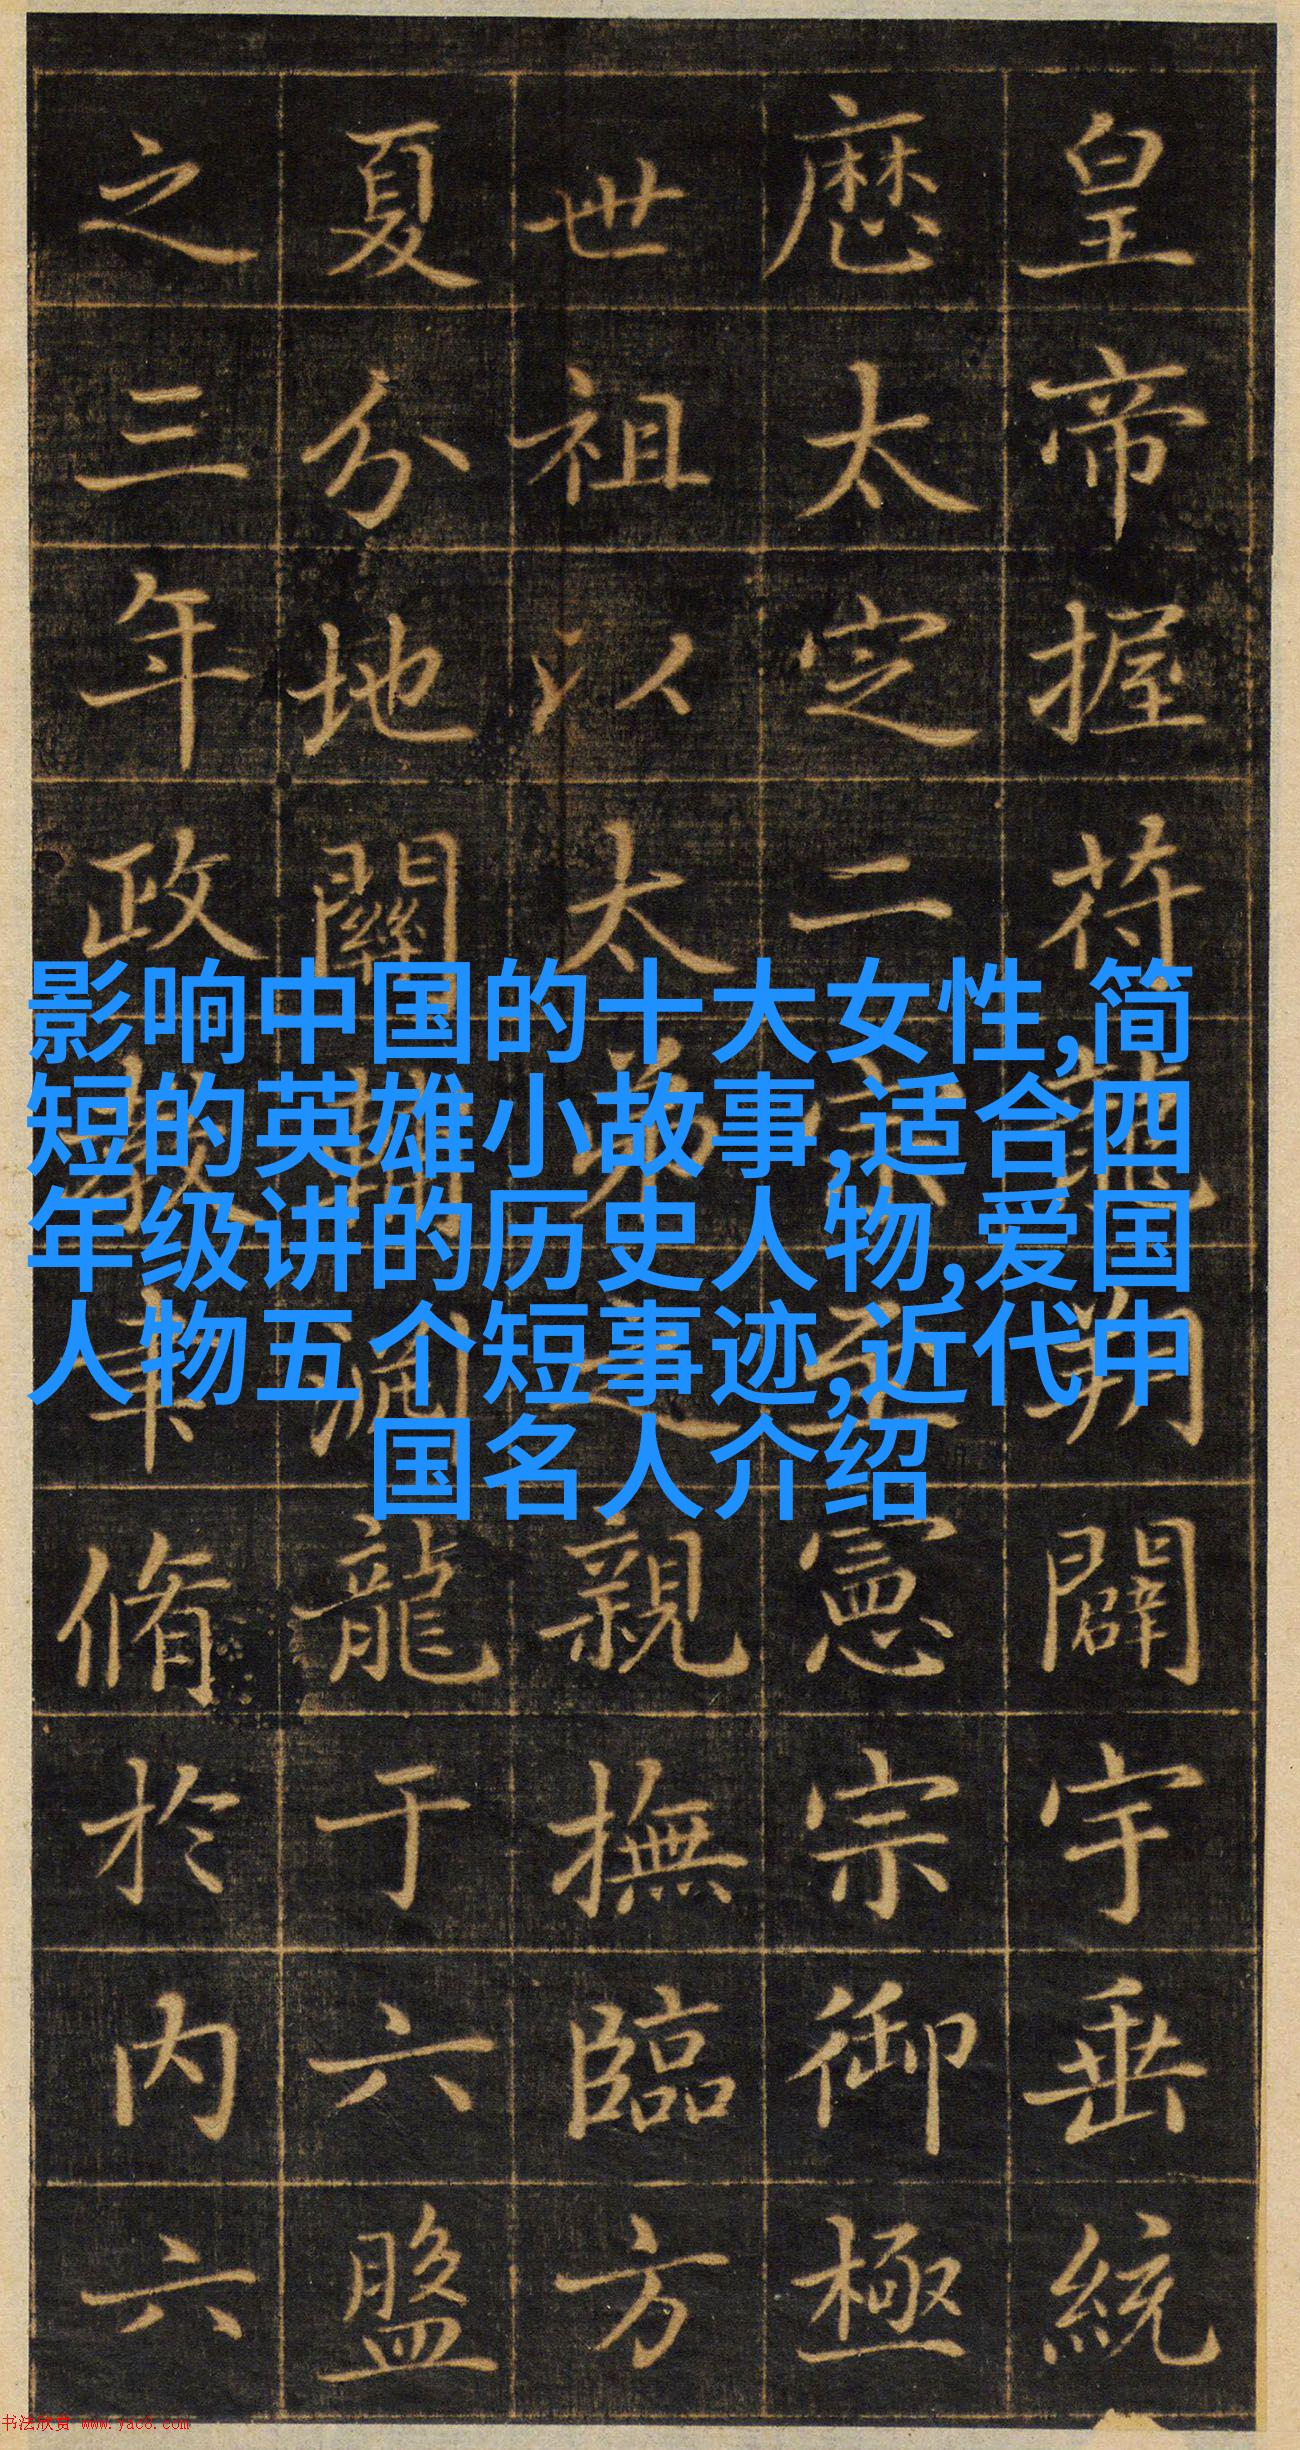 皇帝握符龍朔闢宇垂統
厯太定二宗至憲宗御極
世祖以太弟之親撫臨方
夏分地關輔淵龍于六盤
之三年政教脩於内六
影响中国的十大女性,简
短的英雄小故事,适合四
年级讲的历史人物,爱国
人物五个短事迹,近代中
国名人介绍
书法欣赏 www.yac8.com